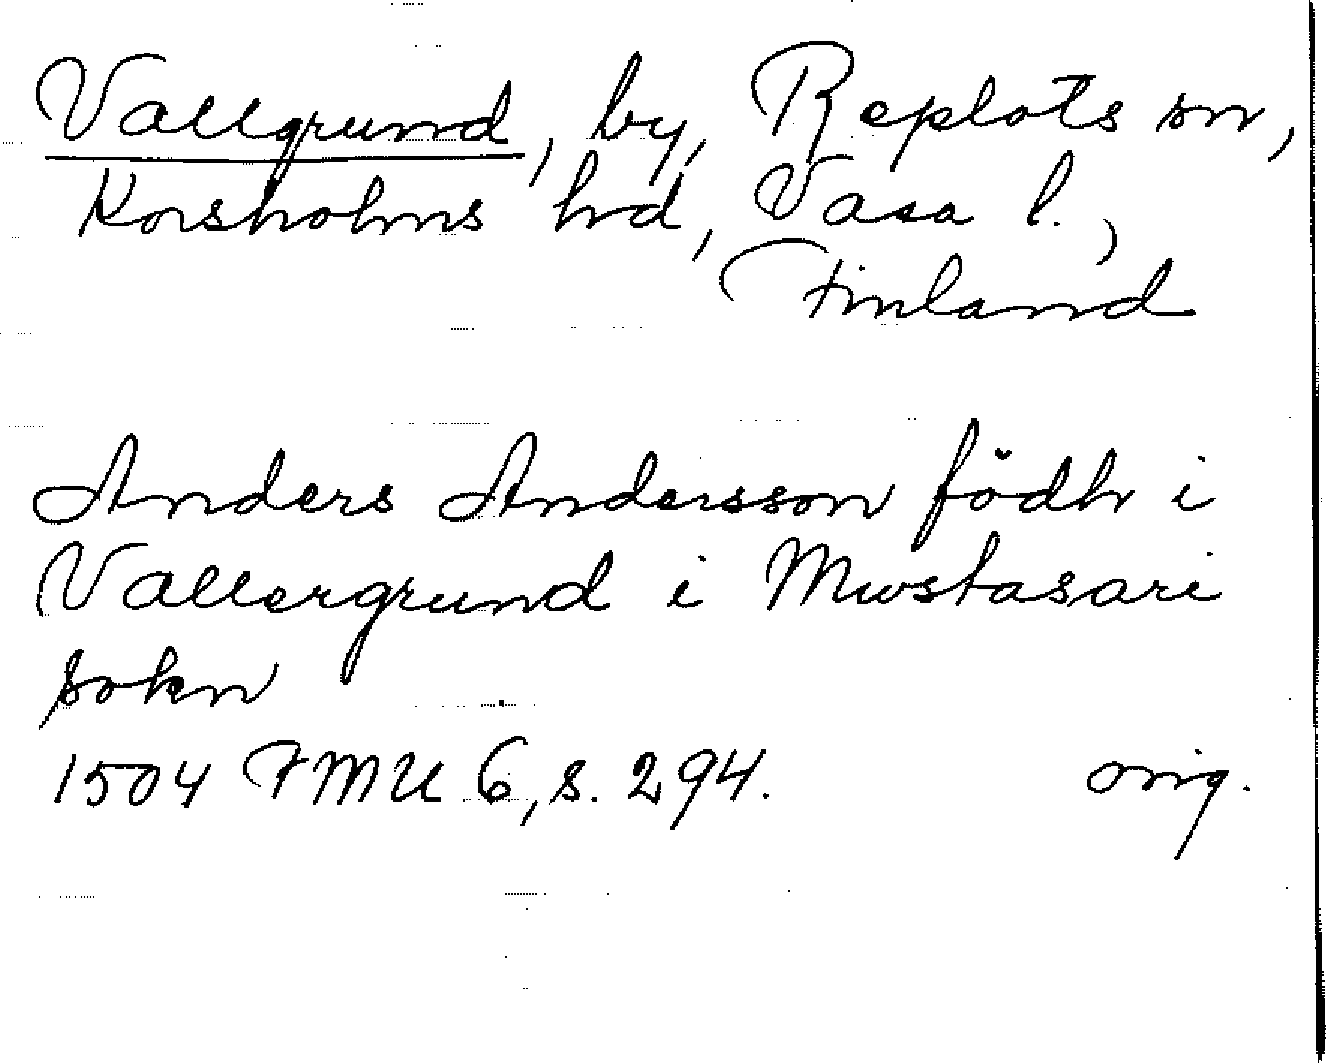 Vallgrund, by, Replots sn,
Korsholms hrd, Vasa l.,
Finland
Anders Andersson födh i
Vallergrund i Mwstasari
sokn
1504 FMU 6, s. 294. orig.